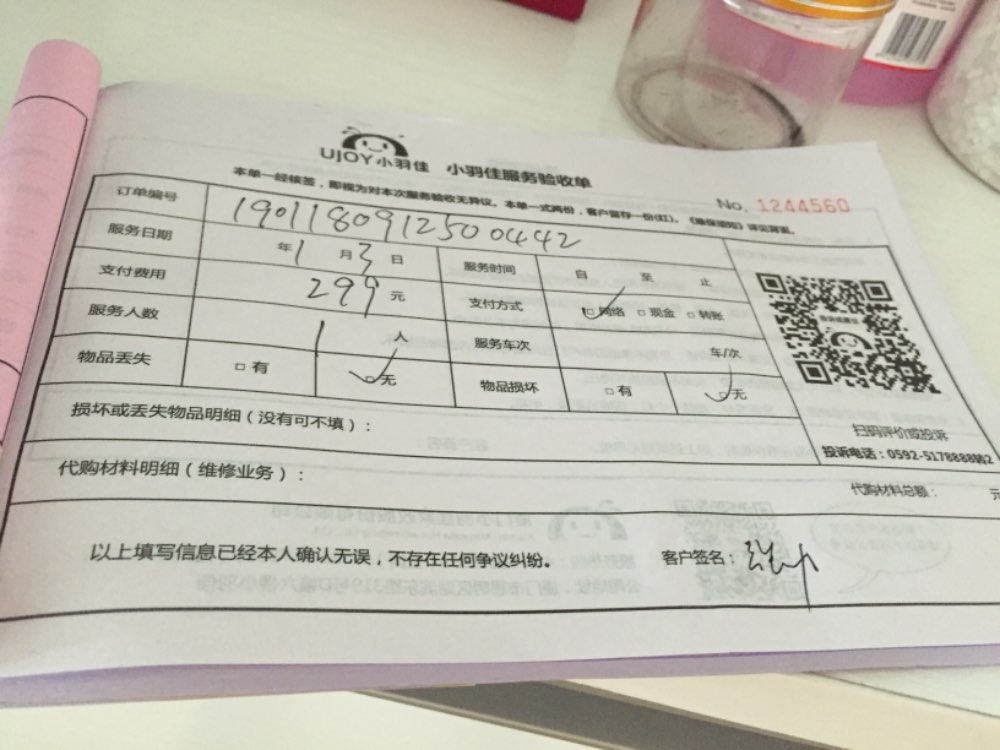 UJOY小羽佳 小羽佳服务验收单
本单一经核签，即视为对本次服务验收无异议。本单一式两份，客户留存一份(红)。《维保须知》详见背面。
No. 1244560
订单编号 190118091250 0442
服务日期 年1月3日 服务时间 自 至 止
支付费用 299元 支付方式 ☑网络 □现金 □转账
服务人数 1人 服务车次 车/次
物品丢失 □有 ☑无 物品损坏 □有 ☑无
扫码评价或投诉
投诉电话：0592-5178888转2
损坏或丢失物品明细（没有可不填）：
代购材料明细（维修业务）：
代购材料总额： 元
以上填写信息已经本人确认无误，不存在任何争议纠纷。 客户签名：